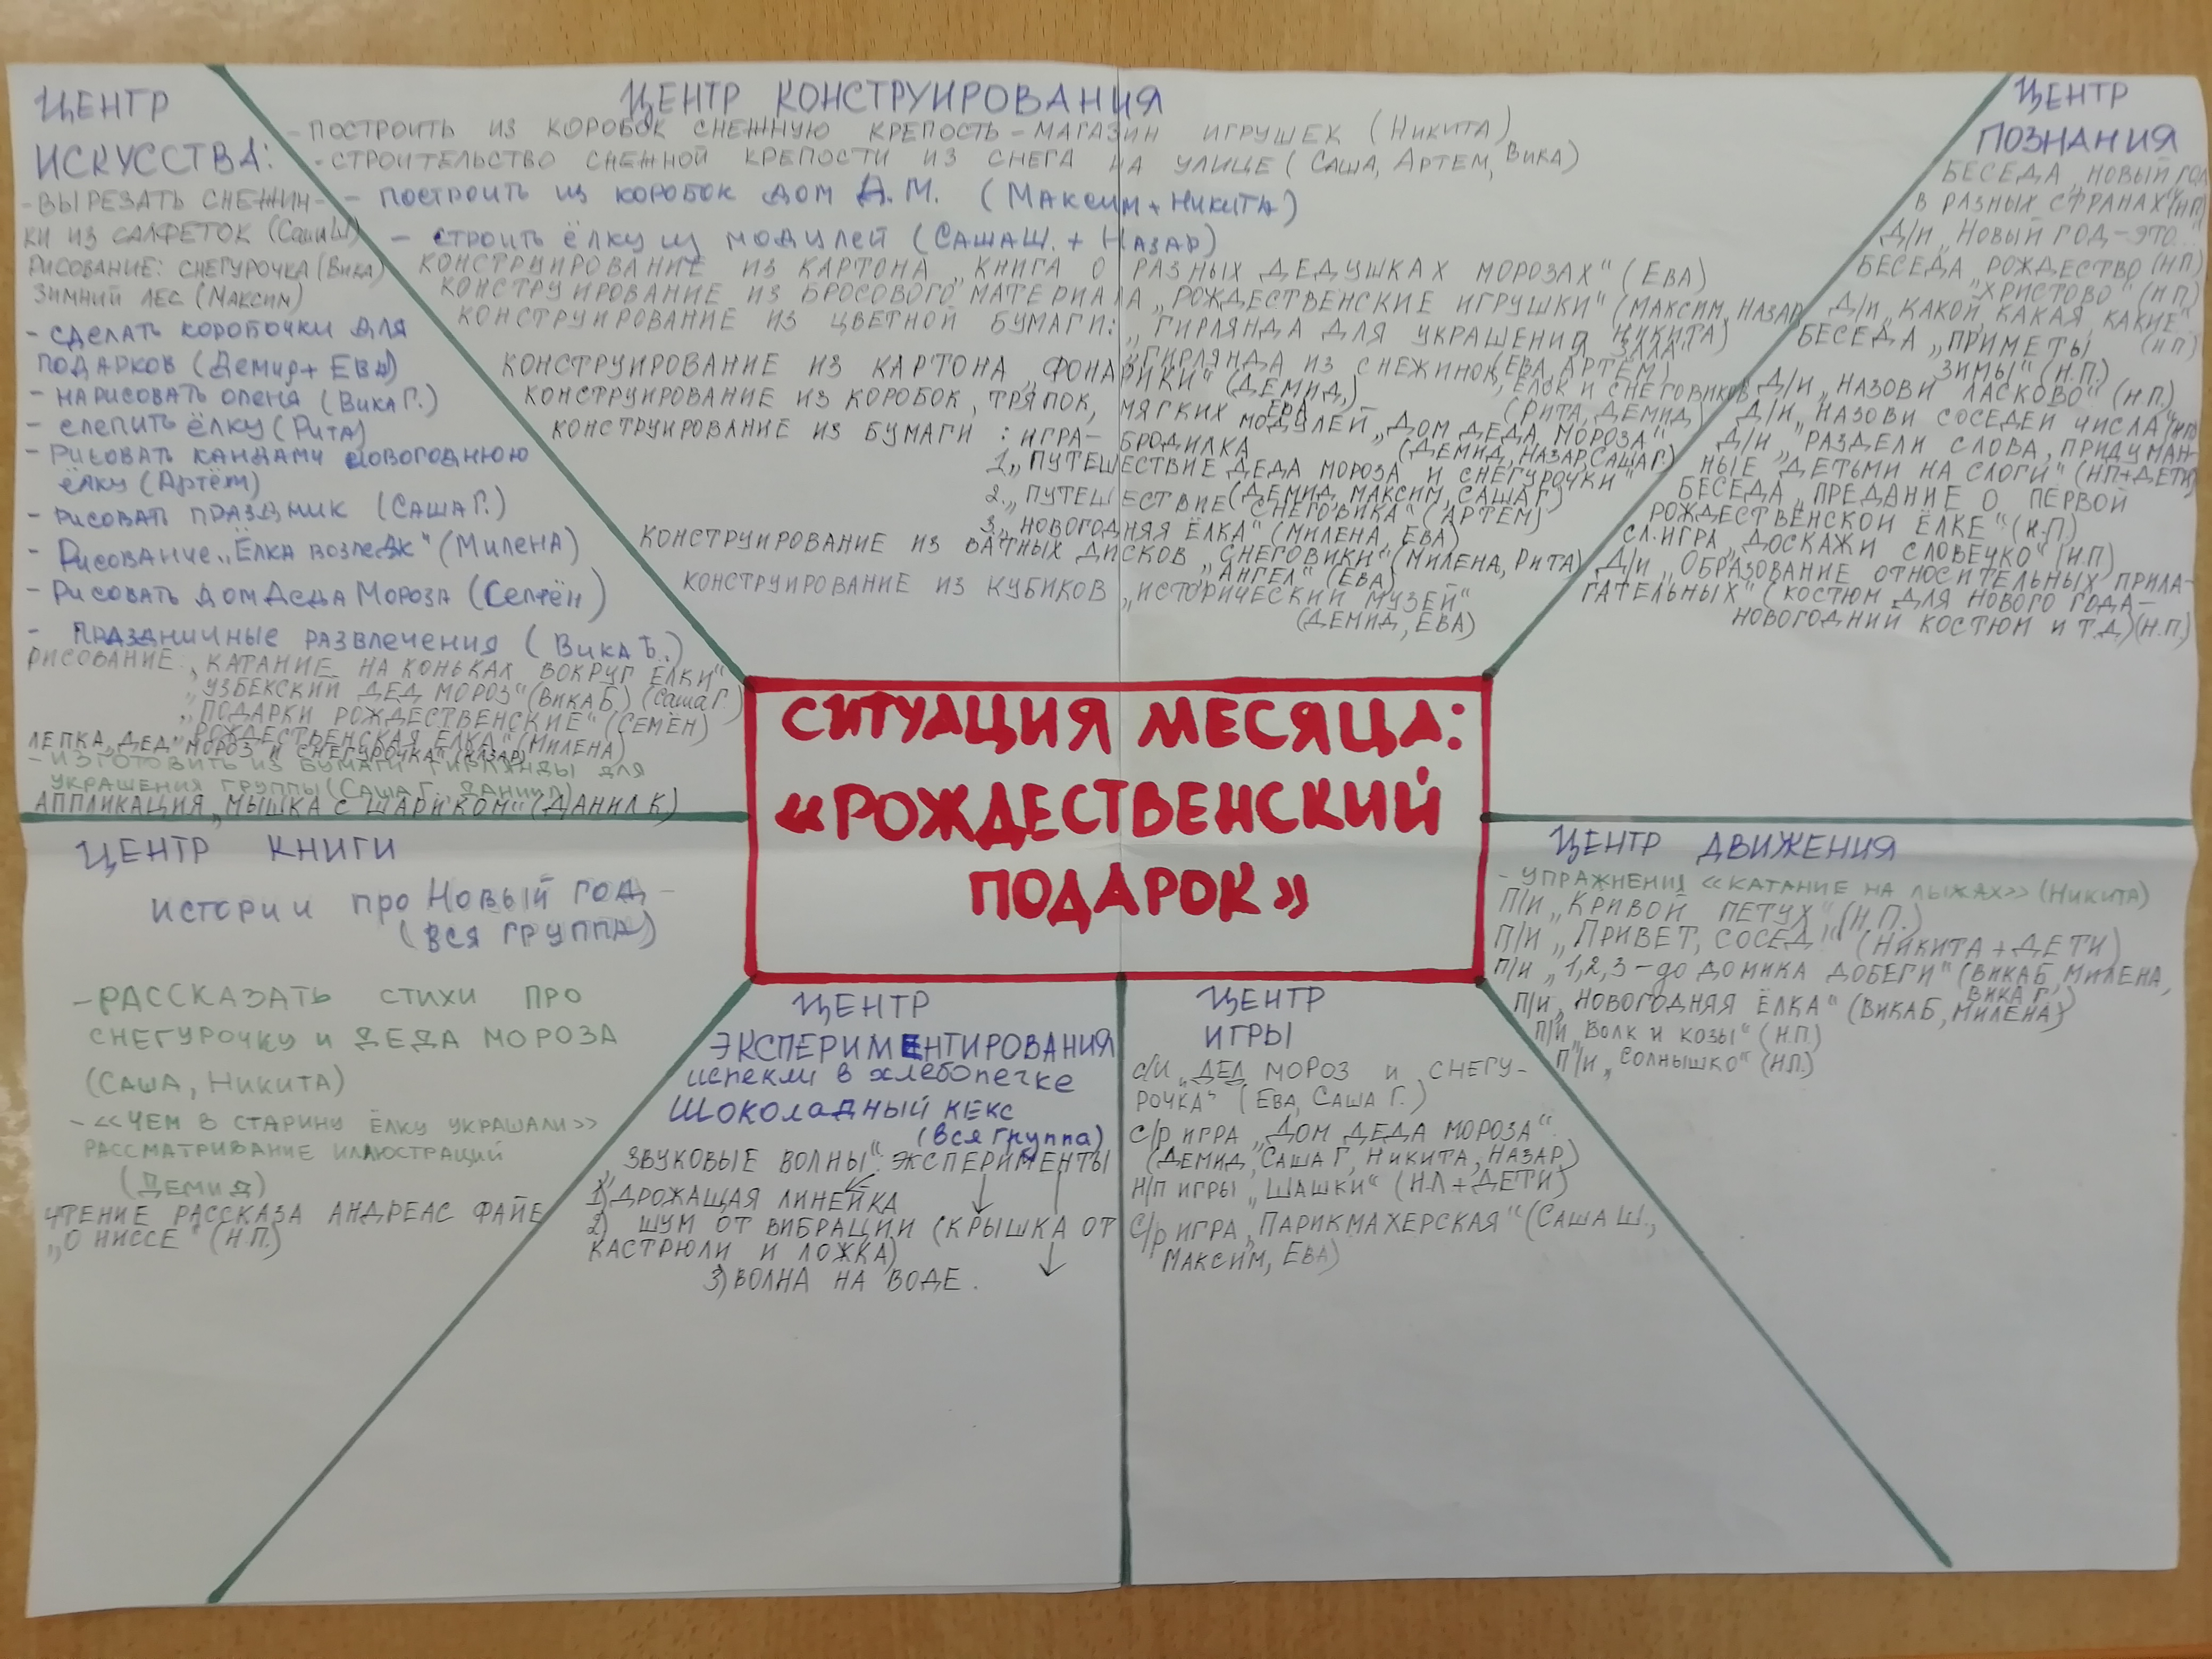 ЦЕНТР
ИСКУССТВА:
- ВЫРЕЗАТЬ СНЕЖИН-
КИ ИЗ САЛФЕТОК (Саша Ш)
РИСОВАНИЕ: СНЕГУРОЧКА (Вика)
ЗИМНИЙ ЛЕС (Максим)
- СДЕЛАТЬ КОРОБОЧКИ ДЛЯ
ПОДАРКОВ (Демид + ЕВА)
- НАРИСОВАТЬ ОЛЕНЯ (ВИКА Г.)
- СЛЕПИТЬ ЁЛКУ (РИТА)
- РИСОВАТЬ НОВОГОДНЮЮ
ЁЛКУ (Артём)
- РИСОВАТЬ ПРАЗДНИК (САША Г.)
- Рисование „Ёлка (МИЛЕНА)
- РИСОВАТЬ ДОМ ДЕДА МОРОЗА (Семён)
- ПРАЗДНИЧНЫЕ РАЗВЛЕЧЕНИЯ (ВИКА Б.)
РИСОВАНИЕ: „КАТАНИЕ НА КОНЬКАХ ВОКРУГ ЁЛКИ“
„УЗБЕКСКИЙ ДЕД МОРОЗ“ (ВИКА Б.) (Саша Г.)
„ПОДАРКИ РОЖДЕСТВЕНСКИЕ“ (СЕМЁН)
„РОЖДЕСТВЕНСКАЯ ЁЛКА“ (МИЛЕНА)
ЛЕПКА „ДЕД МОРОЗ И СНЕГУРОЧКА“ (НАЗАР)
- ИЗГОТОВИТЬ ИЗ БУМАГИ ГИРЛЯНДЫ ДЛЯ
УКРАШЕНИЯ ГРУППЫ (САША Г., ДАНИИЛ)
АППЛИКАЦИЯ „МЫШКА С ШАРИКОМ“ (ДАНИЛ К)
ЦЕНТР КОНСТРУИРОВАНИЯ
- ПОСТРОИТЬ ИЗ КОРОБОК СНЕЖНУЮ КРЕПОСТЬ - МАГАЗИН ИГРУШЕК (НИКИТА)
- СТРОИТЕЛЬСТВО СНЕЖНОЙ КРЕПОСТИ ИЗ СНЕГА НА УЛИЦЕ (САША, АРТЕМ, ВИКА)
- ПОСТРОИТЬ ИЗ КОРОБОК ДОМ Д.М. (МАКСИМ + НИКИТА)
- СТРОИТЬ ЁЛКУ ИЗ МОДУЛЕЙ (САША Ш. + НАЗАР)
КОНСТРУИРОВАНИЕ ИЗ КАРТОНА „КНИГА О РАЗНЫХ ДЕДУШКАХ МОРОЗАХ“ (ЕВА)
КОНСТРУИРОВАНИЕ ИЗ БРОСОВОГО МАТЕРИАЛА „РОЖДЕСТВЕНСКИЕ ИГРУШКИ“ (МАКСИМ, НАЗАР,
НИКИТА)
КОНСТРУИРОВАНИЕ ИЗ ЦВЕТНОЙ БУМАГИ: „ГИРЛЯНДА ДЛЯ УКРАШЕНИЯ ЗАЛА“
„ГИРЛЯНДА ИЗ СНЕЖИНОК, (ЕВА, АРТЁМ)
ЁЛОК И СНЕГОВИКОВ
(РИТА, ДЕМИД)
КОНСТРУИРОВАНИЕ ИЗ КАРТОНА „ФОНАРИКИ“ (ДЕМИД,
ЕВА)
КОНСТРУИРОВАНИЕ ИЗ КОРОБОК, ТРЯПОК, МЯГКИХ МОДУЛЕЙ „ДОМ ДЕДА МОРОЗА“
(ДЕМИД, НАЗАР, САША Г.)
КОНСТРУИРОВАНИЕ ИЗ БУМАГИ: ИГРА- БРОДИЛКА
1. „ПУТЕШЕСТВИЕ ДЕДА МОРОЗА И СНЕГУРОЧКИ“
(ДЕМИД, МАКСИМ, САША Г)
2. „ПУТЕШЕСТВИЕ СНЕГОВИКА“ (АРТЁМ)
3. „НОВОГОДНЯЯ ЁЛКА“ (МИЛЕНА, ЕВА)
КОНСТРУИРОВАНИЕ ИЗ ВАТНЫХ ДИСКОВ „СНЕГОВИКИ“ (МИЛЕНА, РИТА)
„АНГЕЛ“ (ЕВА)
КОНСТРУИРОВАНИЕ ИЗ КУБИКОВ „ИСТОРИЧЕСКИЙ МУЗЕЙ“
(ДЕМИД, ЕВА)
ЦЕНТР
ПОЗНАНИЯ
БЕСЕДА „НОВЫЙ ГОД
В РАЗНЫХ СТРАНАХ“ (НП)
Д/И „НОВЫЙ ГОД - ЭТО...“
(НП)
БЕСЕДА „РОЖДЕСТВО
ХРИСТОВО“ (Н.П.)
Д/И „КАКОЙ, КАКАЯ, КАКИЕ“
(Н.П)
БЕСЕДА „ПРИМЕТЫ
ЗИМЫ“ (Н.П.)
Д/И „НАЗОВИ ЛАСКОВО“ (Н.П.)
Д/И „НАЗОВИ СОСЕДЕЙ ЧИСЛА“ (НП)
Д/И „РАЗДЕЛИ СЛОВА, ПРИДУМАН-
НЫЕ ДЕТЬМИ НА СЛОГИ“ (НП+ДЕТИ)
БЕСЕДА „ПРЕДАНИЕ О ПЕРВОЙ
РОЖДЕСТВЕНСКОЙ ЁЛКЕ“ (Н.П.)
СЛ. ИГРА „ДОСКАЖИ СЛОВЕЧКО“ (Н.П)
Д/И „ОБРАЗОВАНИЕ ОТНОСИТЕЛЬНЫХ ПРИЛА-
ГАТЕЛЬНЫХ“ (КОСТЮМ ДЛЯ НОВОГО ГОДА -
НОВОГОДНИЙ КОСТЮМ И Т.Д) (Н.П.)
СИТУАЦИЯ МЕСЯЦА:
«РОЖДЕСТВЕНСКИЙ
ПОДАРОК»
ЦЕНТР КНИГИ
ИСТОРИИ ПРО НОВЫЙ ГОД -
(ВСЯ ГРУППА)
- РАССКАЗАТЬ СТИХИ ПРО
СНЕГУРОЧКУ И ДЕДА МОРОЗА
(САША, НИКИТА)
- «ЧЕМ В СТАРИНУ ЁЛКУ УКРАШАЛИ»
РАССМАТРИВАНИЕ ИЛЛЮСТРАЦИЙ
(ДЕМИД)
ЧТЕНИЕ РАССКАЗА АНДРЕАС ФАЙЕ
„О НИССЕ“ (Н.П.)
ЦЕНТР
ЭКСПЕРИМЕНТИРОВАНИЯ
испекли в хлебопечке
ШОКОЛАДНЫЙ КЕКС
(вся группа)
„ЗВУКОВЫЕ ВОЛНЫ“: ЭКСПЕРИМЕНТЫ
1) ДРОЖАЩАЯ ЛИНЕЙКА
2) ШУМ ОТ ВИБРАЦИИ (КРЫШКА ОТ
КАСТРЮЛИ И ЛОЖКА)
3) ВОЛНА НА ВОДЕ.
ЦЕНТР
ИГРЫ
С/И „ДЕД МОРОЗ И СНЕГУ-
РОЧКА“ (ЕВА, САША Г.)
С/р ИГРА „ДОМ ДЕДА МОРОЗА“
(ДЕМИД, САША Г, НИКИТА, НАЗАР)
Н/П ИГРЫ „ШАШКИ“ (Н.П + ДЕТИ)
С/р ИГРА „ПАРИКМАХЕРСКАЯ“ (САША Ш.,
МАКСИМ, ЕВА)
ЦЕНТР ДВИЖЕНИЯ
- УПРАЖНЕНИЯ «КАТАНИЕ НА ЛЫЖАХ» (НИКИТА)
П/И „КРИВОЙ ПЕТУХ“ (Н.П.)
П/И „ПРИВЕТ, СОСЕД“ (НИКИТА + ДЕТИ)
П/И „1,2,3 - до ДОМИКА ДОБЕГИ“ (ВИКА Б, МИЛЕНА,
ВИКА Г.)
П/И „НОВОГОДНЯЯ ЁЛКА“ (ВИКА Б, МИЛЕНА)
П/И „ВОЛК И КОЗЫ“ (Н.П.)
П/И „СОЛНЫШКО“ (Н.П.)